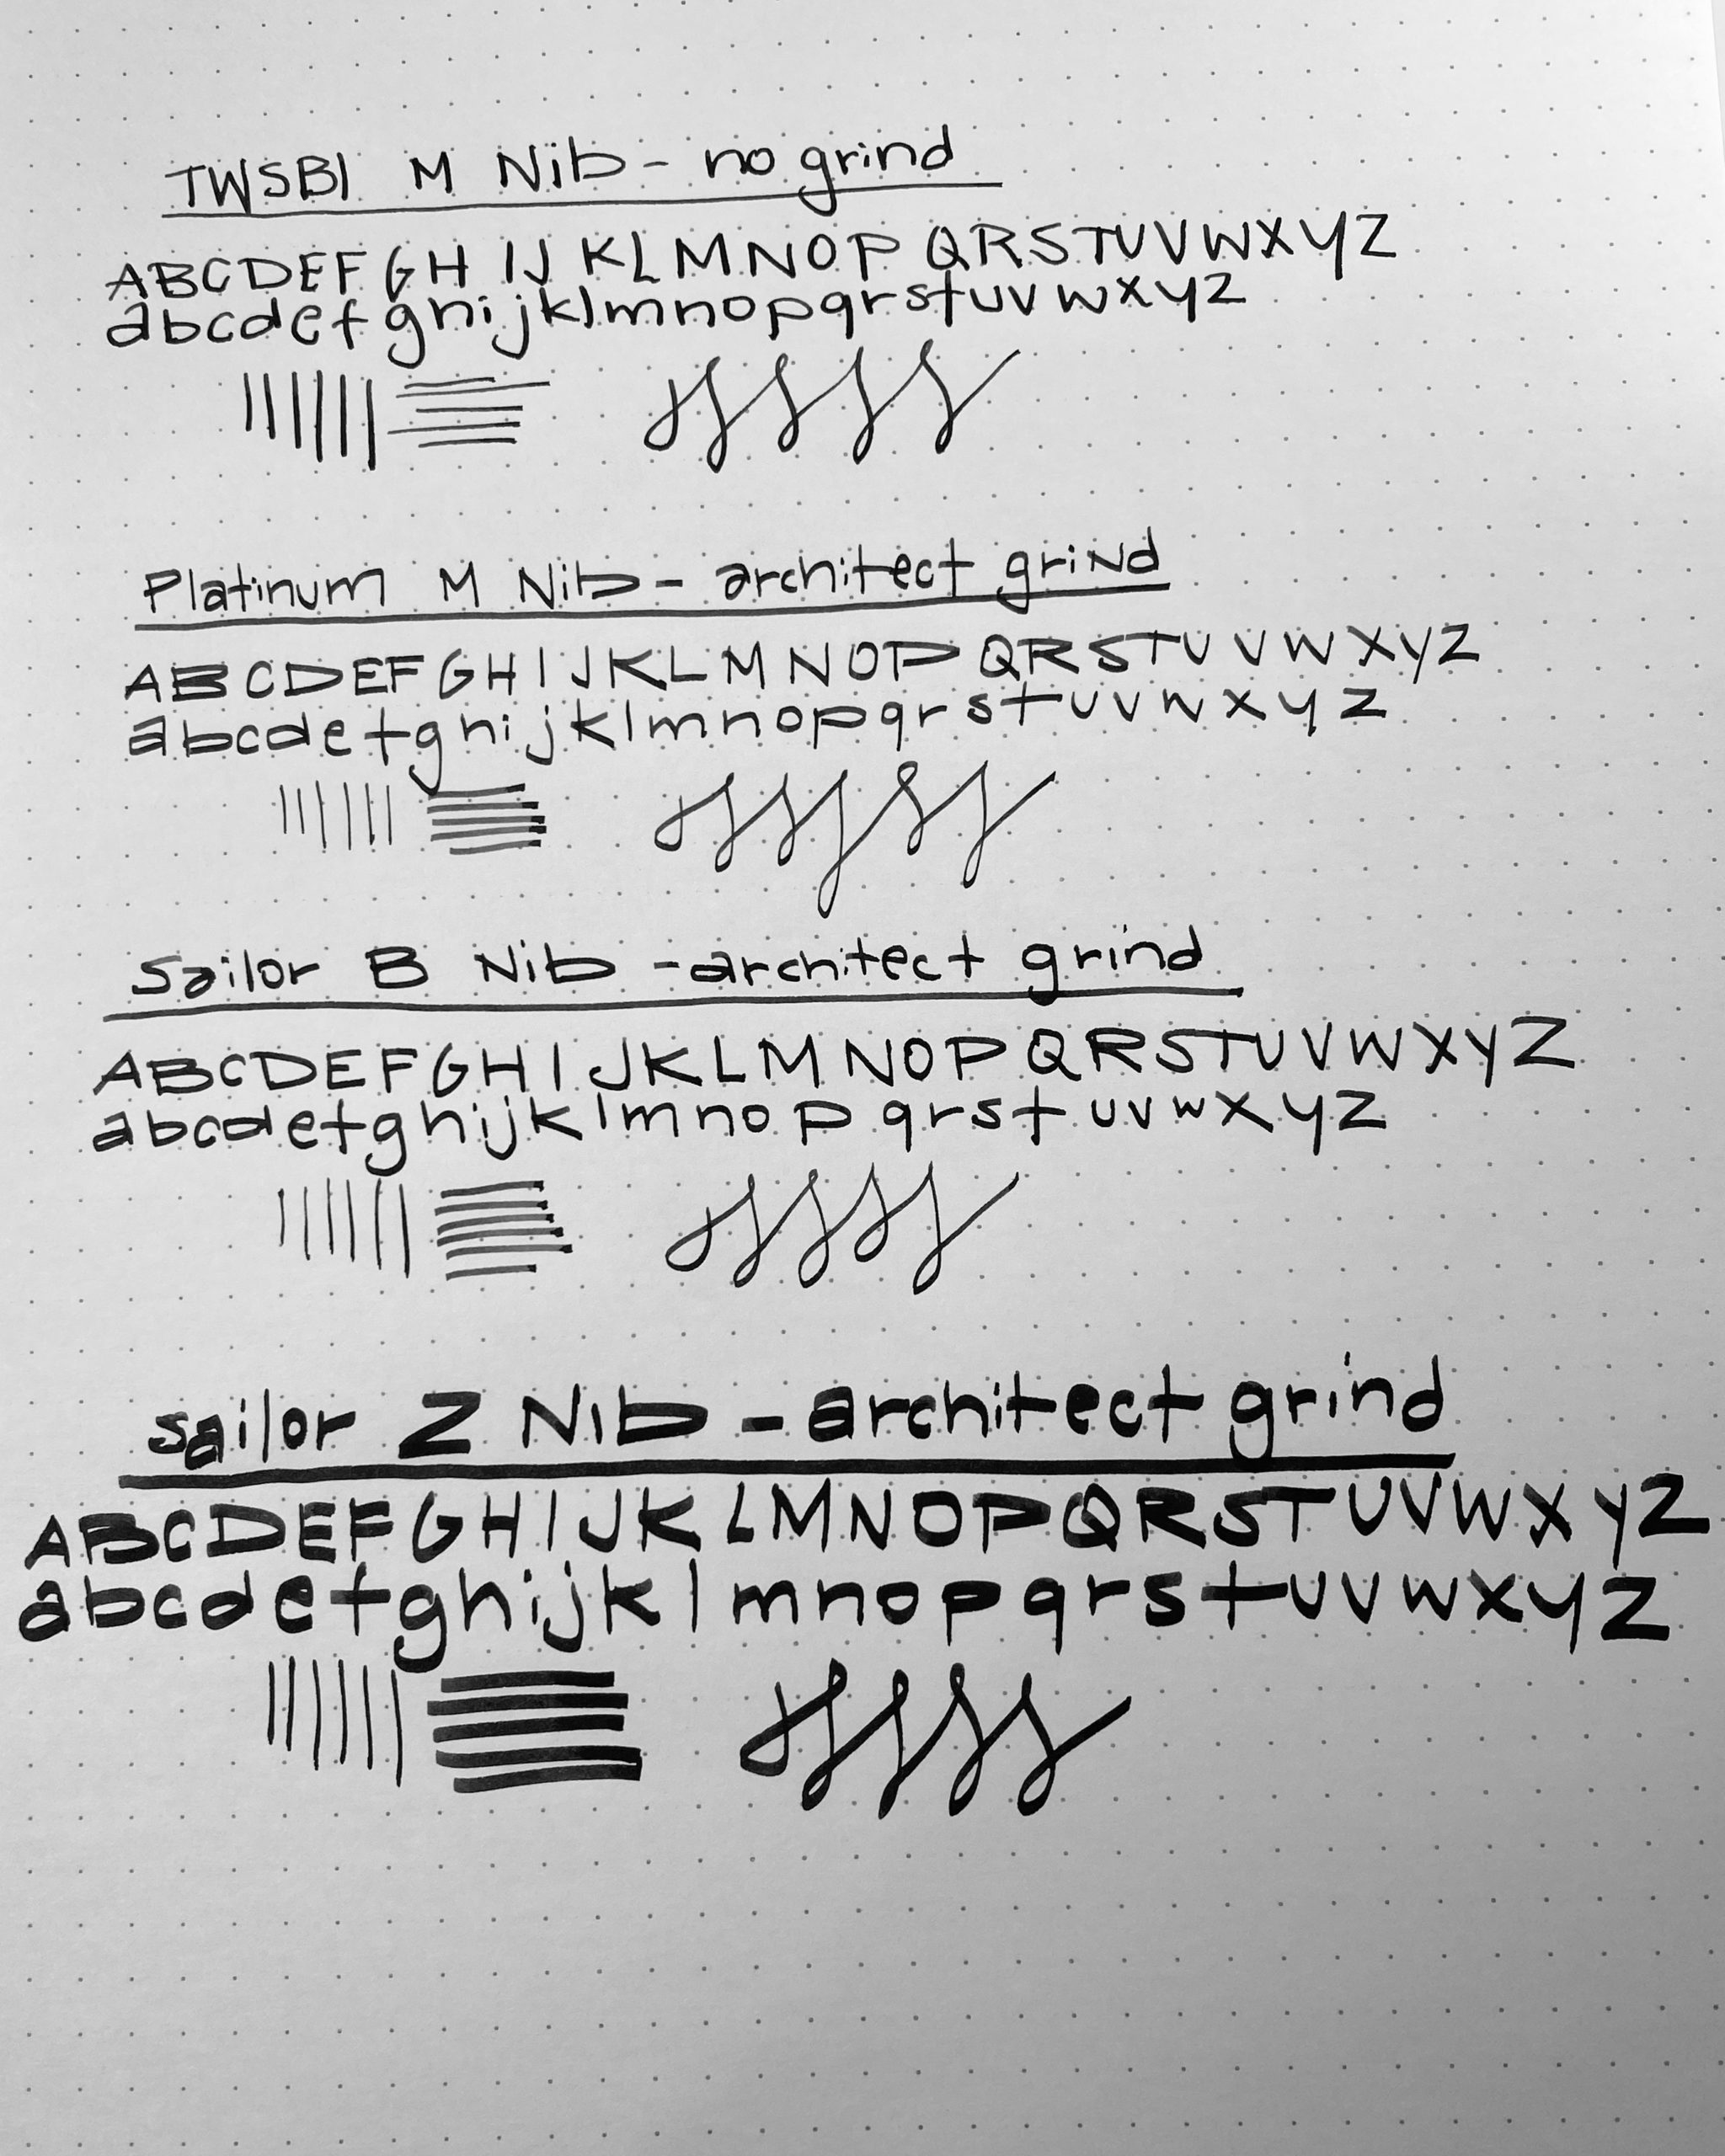 TWSBI M Nib - no grind
ABCDEFGHIJKLMNOPQRSTUVWXYZ
abcdefghijklmnopqrstuvwxyz
Platinum M Nib - architect grind
ABCDEFGHIJKLMNOPQRSTUVWXYZ
abcdefghijklmnopqrstuvwxyz
Sailor B Nib - architect grind
ABCDEFGHIJKLMNOPQRSTUVWXYZ
abcdefghijklmnopqrstuvwxyz
sailor Z Nib - architect grind
ABCDEFGHIJKLMNOPQRSTUVWXYZ
abcdefghijklmnopqrstuvwxyz